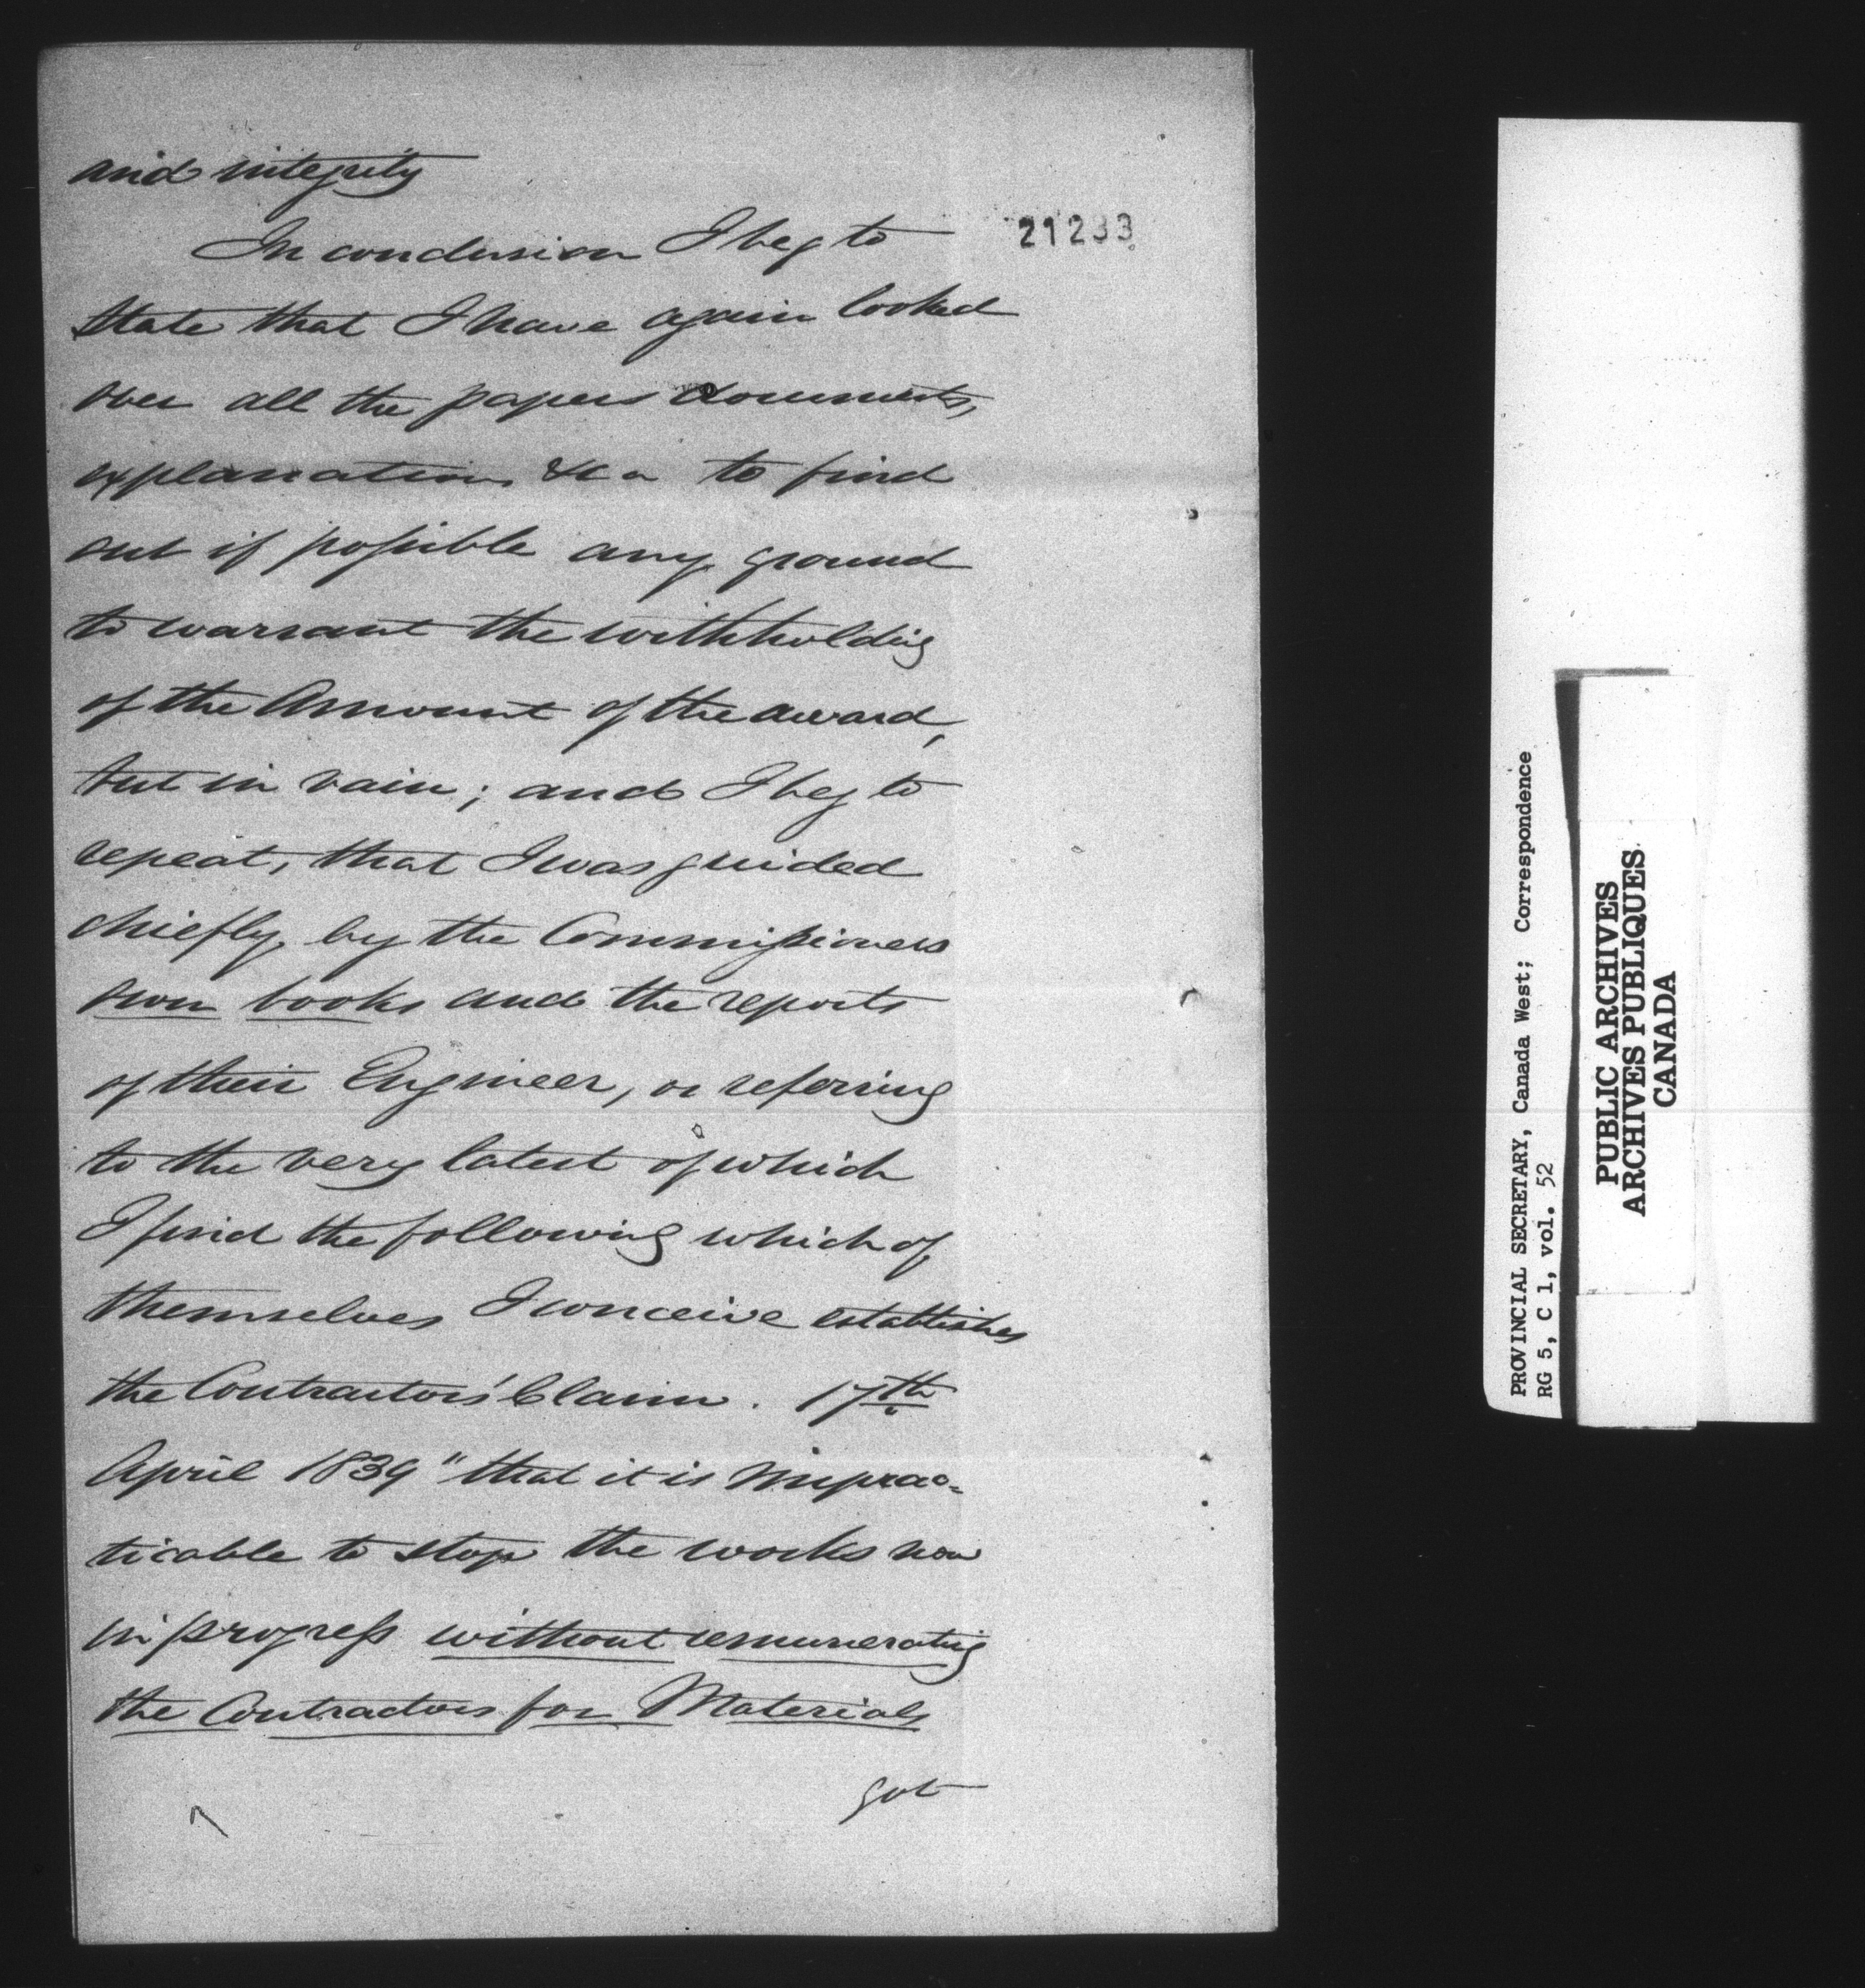 and integrity
In conclusion I beg to
21233
state that I have again looked
over all the papers documents,
explanations &ca to find
out if possible any ground
to warrant the withholding
of the Amount of the award,
but in vain; and I beg to
repeat, that I was guided
chiefly, by the Commissioners
own books and the reports
of their Engineer, on referring
to the very latest of which
I find the following which of
themselves I conceive establishes
the Contractors' Claim. 17th
April 1839 "that it is imprac=
ticable to stop the works now
in progress without remunerating
the Contractors for Materials
got
PROVINCIAL SECRETARY, Canada West; Correspondence
RG 5, C 1, vol. 52
PUBLIC ARCHIVES
ARCHIVES PUBLIQUES
CANADA